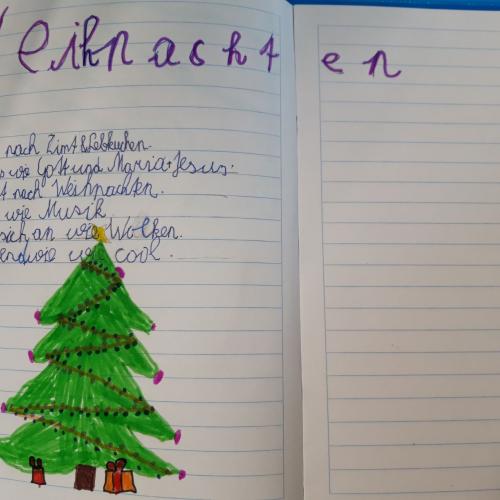 Weihnachten
nach Zimt & Lebkuchen.
wie Gott und Maria + Jesus.
nach Weihnachten.
wie Musik
sich an wie Wolken.
wie cool.